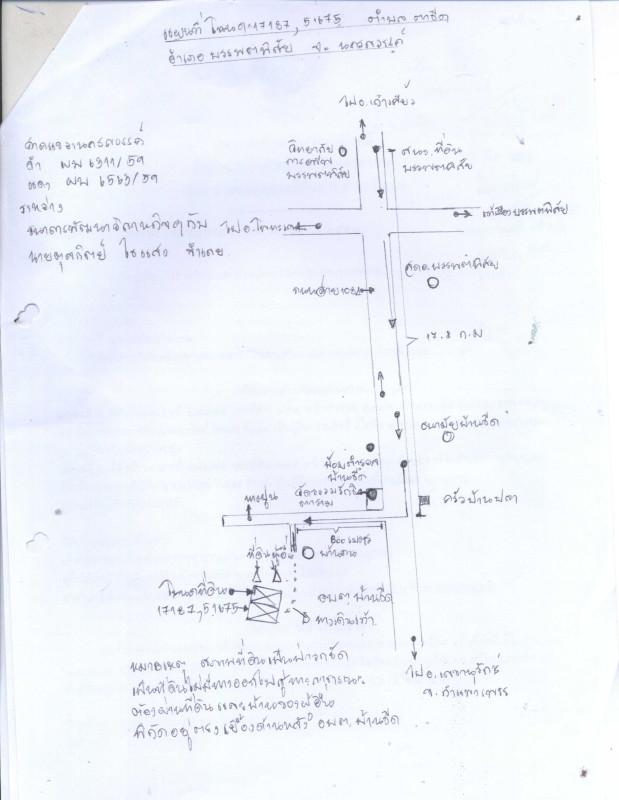 แผนที่ โฉนด 17187, 51675 ตำบล ตาขีด
อำเภอ บรรพตพิสัย จ. นครสวรรค์
ไป อ.เก้าเลี้ยว
ศาลแขวงนครสวรรค์
ดำ ผบ 6311/59
แดง ผบ 6563/59
ระหว่าง
นาย ไชยแสง จำเลย
วิทยาลัย
การอาชีพ
บรรพตพิสัย
สนง. ที่ดิน
บรรพตพิสัย
ไป อ.
บรรพตพิสัย
บรรพตพิสัย
17.8 ก.ม
อนามัยบ้านขีด
ป้อมตำรวจ
บ้านขีด
ครัวบ้านปลา
ทางปูน
800 เมตร
ที่ดินผู้อื่น
บ้านคน
โฉนดที่ดิน
17187, 51675
อบต. บ้านขีด
ทางเดินเท้า
หมายเหตุ สภาพที่ดินเป็นป่ารกชัฏ
เป็นที่ดินไม่มีทางออกไปสู่ทางสาธารณะ
ต้องผ่านที่ดินและบ้านของผู้อื่น
พิกัดอยู่ตรงเยื้องด้านหลัง อบต. บ้านขีด
ไป อ.
จ. กำแพงเพชร